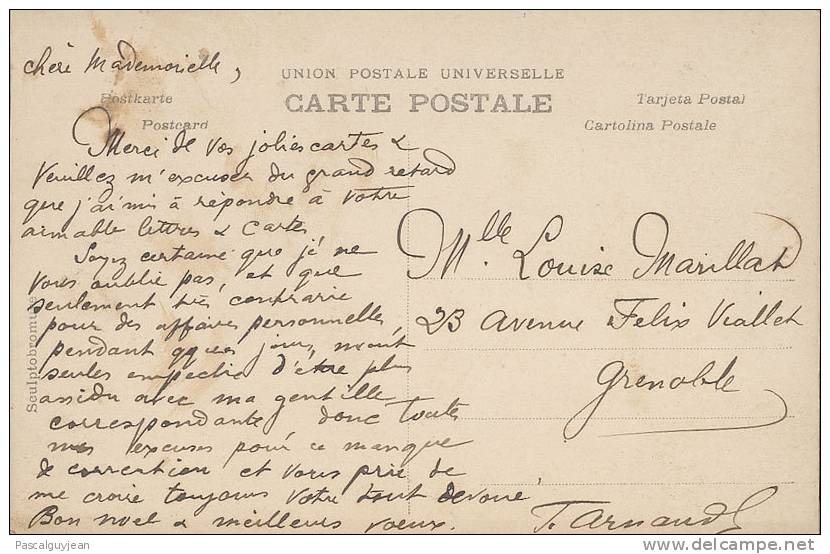 chère Mademoiselle,
UNION POSTALE UNIVERSELLE
CARTE POSTALE
Postkarte
Postcard
Tarjeta Postal
Cartolina Postale
Merci de vos jolies cartes &
Veuillez m'excuser du grand retard
que j'ai mis à répondre à votre
aimable lettres & cartes,
Soyez certaine que je ne
vous oublie pas, et que
seulement très contrarié
pour des affaires personnelles,
pendant qques jours, m'ont
seules empêché d'être plus
assidu avec ma gentille
correspondante, donc toutes
mes excuses pour ce manque
de correction et vous prie de
me croire toujours votre tout dévoué
Bon noel & meilleurs voeux.
F. Arnaud
Mlle Louise Marillat
23 Avenue Felix Viallet
Grenoble
Sculptobromure
Pascalguyjean
www.delcampe.net